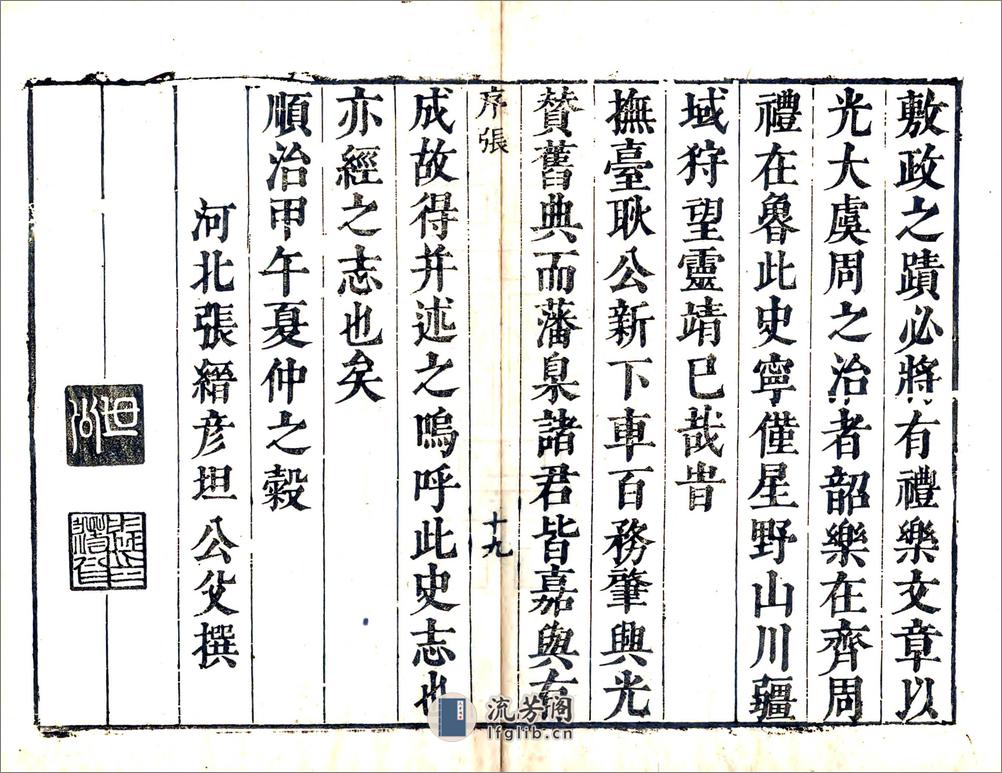 敷政之蹟必將有禮樂文章以
光大虞周之治者韶樂在齊周
禮在魯此史寧僅星野山川疆
域狩望靈靖已哉昔
撫臺耿公新下車百務肇興光
贊舊典而藩臬諸君皆嘉與右
序張
十九
成故得并述之嗚呼此史志也
亦經之志也矣
順治甲午夏仲之穀
河北張縉彥坦公父撰
流芳阁
lfglib.cn